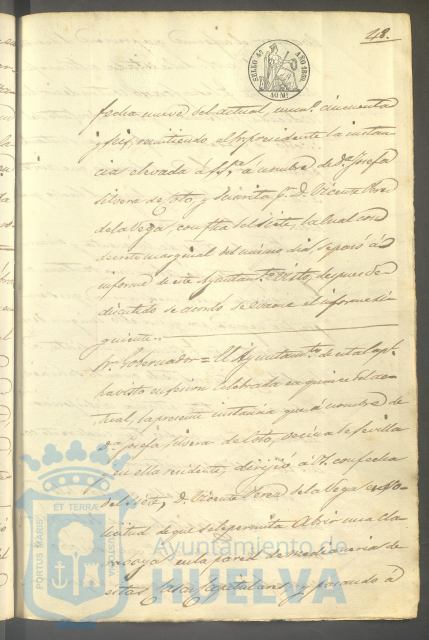 48.
SELLO 4º AÑO 1860.
40 Mº
fecha nueve del actual, num.º cincuenta
y seis, remitiendo al Sr. presidente la instan
cia elevada á S.S.ª á nombre de D.ª Josefa
Silvera de Soto, y suscrita p. D. Vicente Perez
de la Vega con fha del siete, la cual con
decreto marginal del mismo dia, se pasó á
informe de este Ayuntam.to Visto, despues de
discutido se acordó se evacue el informe si
guiente..
Sr. Gobernador = El Ayuntam.to de esta Cap.l
ha visto en sesion celebrada en quince del ac
tual, la presente instancia que á nombre de
D.ª Josefa Silvera de Soto, vecina de Sevilla
en ella residente, dirijió á V.S. con fecha
del siete, D. Vicente Perez de la Vega en so
licitud de que se le permita abrir una cla
raboya en la pared de medianeria de
estas Casas Capitulares y parando á
PORTUS MARIS ET TERRAE CUSTODIA
Ayuntamiento de
HUELVA